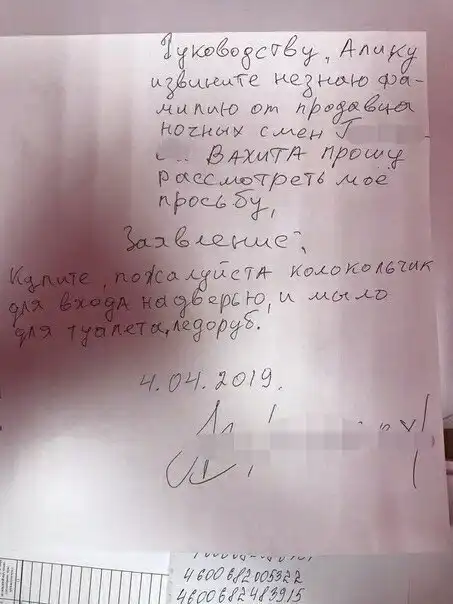 Руководству, Алику
извините незнаю фа-
милию от продавца
ночных смен Г
ВАХИТА прошу
рассмотреть моё
просьбу,
Заявление.
Купите, пожалуйста колокольчик
для входа надверью, и мыло
для туалета, ледоруб.
4.04.2019.
4600682005322
4600682483915